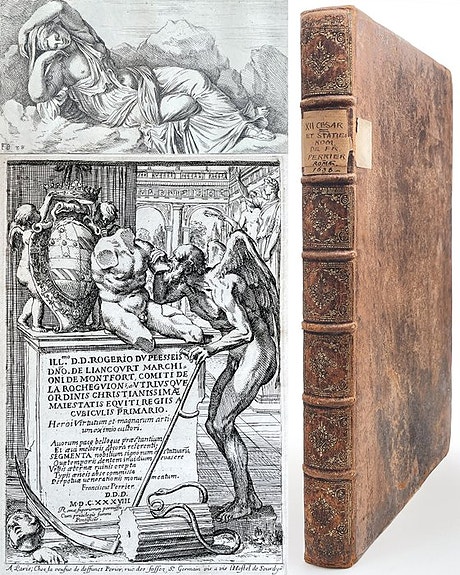 ILL.mo D.D. ROGERIO DV PLESSEIS
DÑO. DE LIANCOVRT MARCHI-
ONI DE MONTFORT, COMITI DE
LA ROCHEGVION, &c VTRIVSQVE
ORDINIS CHRISTIANISSIMÆ
MAIESTATIS EQVITI REGIIS A
CVBICVLIS PRIMARIO.
Heroi Virtutum et magnarum arti-
um eximio cultori.
Avorum pace belloque præstantium
Et ævi melioris decora referenti
SEGMENTA nobilium signorum e statuarũ
Quæ temporis dentem invidium evasere
Urbis æternæ ruinis erepta
Typis æneis abse commissa
Perpetuæ venerationis monumentum.
Franciscus Perrier.
D.D.D.
M.D.C.XXXVIII
Romæ superiorum permissu
Cum privilegio summi
Pontificis
A Paris, Chez la veufue de deffunct Perier, rue des fossez St. Germain vis a vis l'Hostel de Sourdys
XII CESAR
ET STATUE
ROM
DE FR
PERRIER
ROMÆ
1638